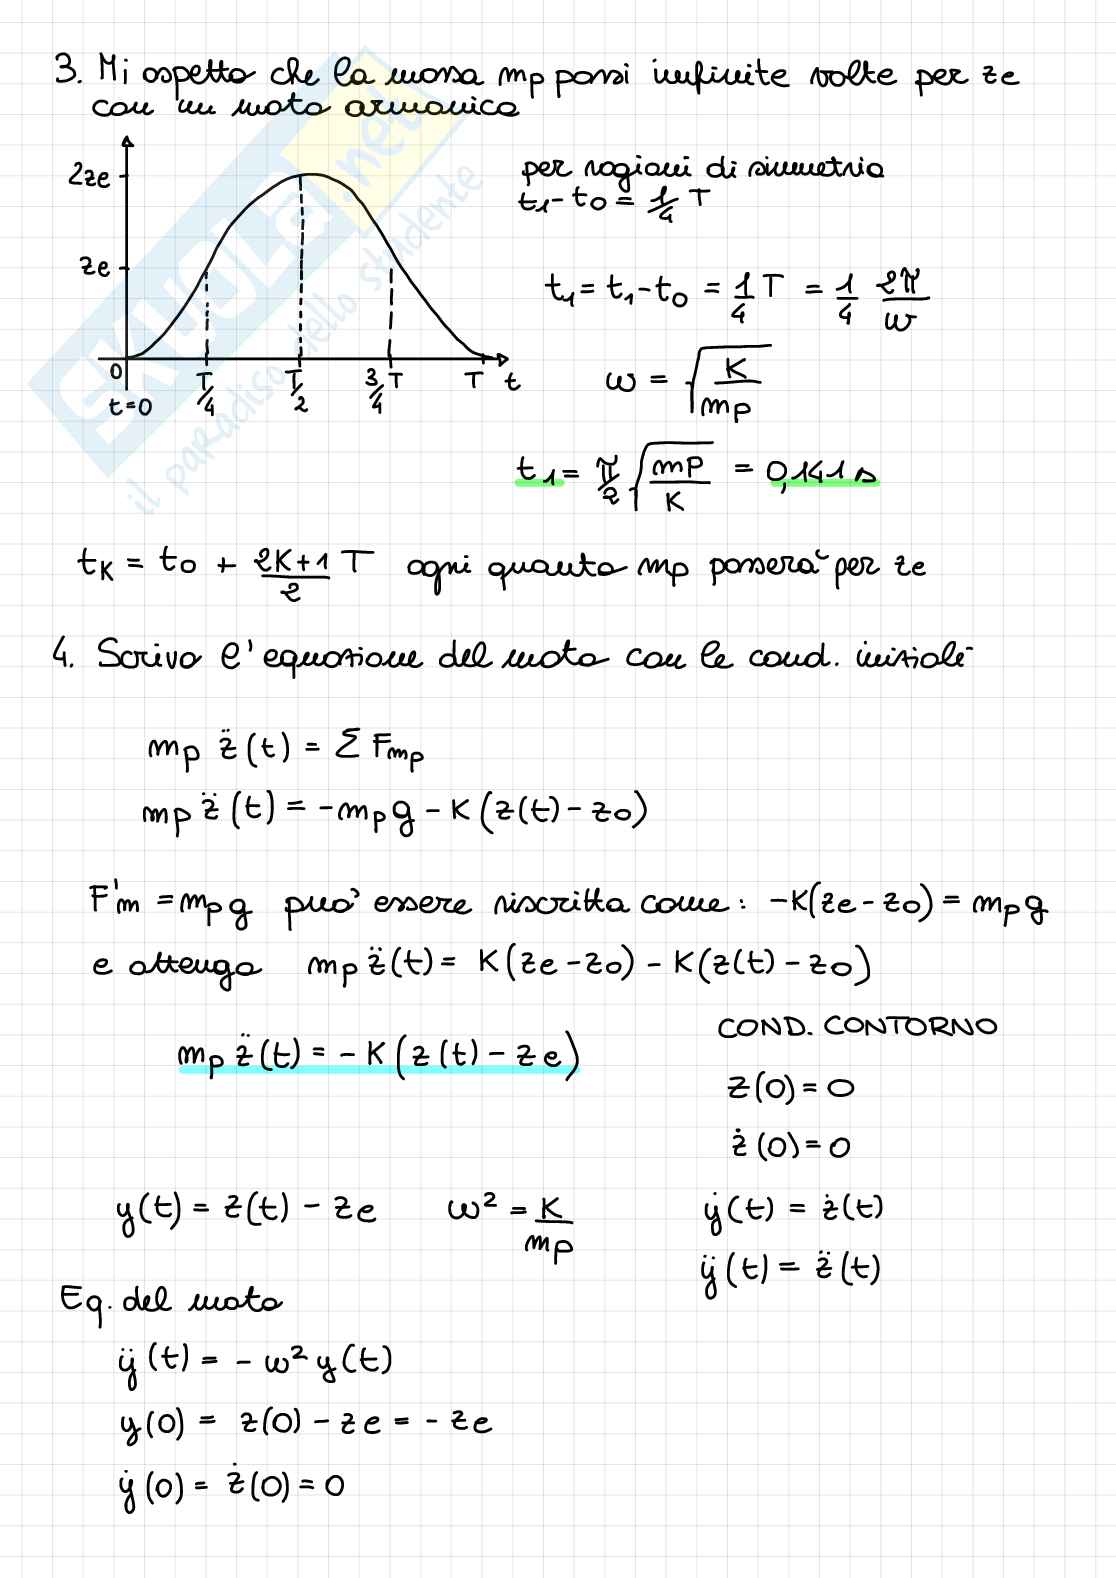 3. Mi aspetto che la massa mp passi infinite volte per ze
con un moto armonico
2ze
ze
0
t=0
T/4
T/2
3/4 T
T
t
per ragioni di simmetria
t1-t0 = 1/4 T
t1 = t1-t0 = 1/4 T = 1/4 2π/ω
ω = √(K/mp)
t1 = π/2 √(mp/K) = 0,141 s
tK = t0 + (2K+1)/2 T ogni quanto mp passerà per ze
4. Scrivo l'equazione del moto con le cond. iniziali
mp z̈(t) = Σ Fmp
mp z̈(t) = -mpg - K(z(t) - z0)
F'm = mpg può essere riscritta come: -K(ze - z0) = mpg
e ottengo mp z̈(t) = K(ze - z0) - K(z(t) - z0)
mp z̈(t) = - K(z(t) - ze)
COND. CONTORNO
z(0) = 0
ż(0) = 0
y(t) = z(t) - ze ω² = K/mp
ẏ(t) = ż(t)
ÿ(t) = z̈(t)
Eq. del moto
ÿ(t) = - ω² y(t)
y(0) = z(0) - ze = - ze
ẏ(0) = ż(0) = 0
SKUOLA.net
il paradiso dello studente